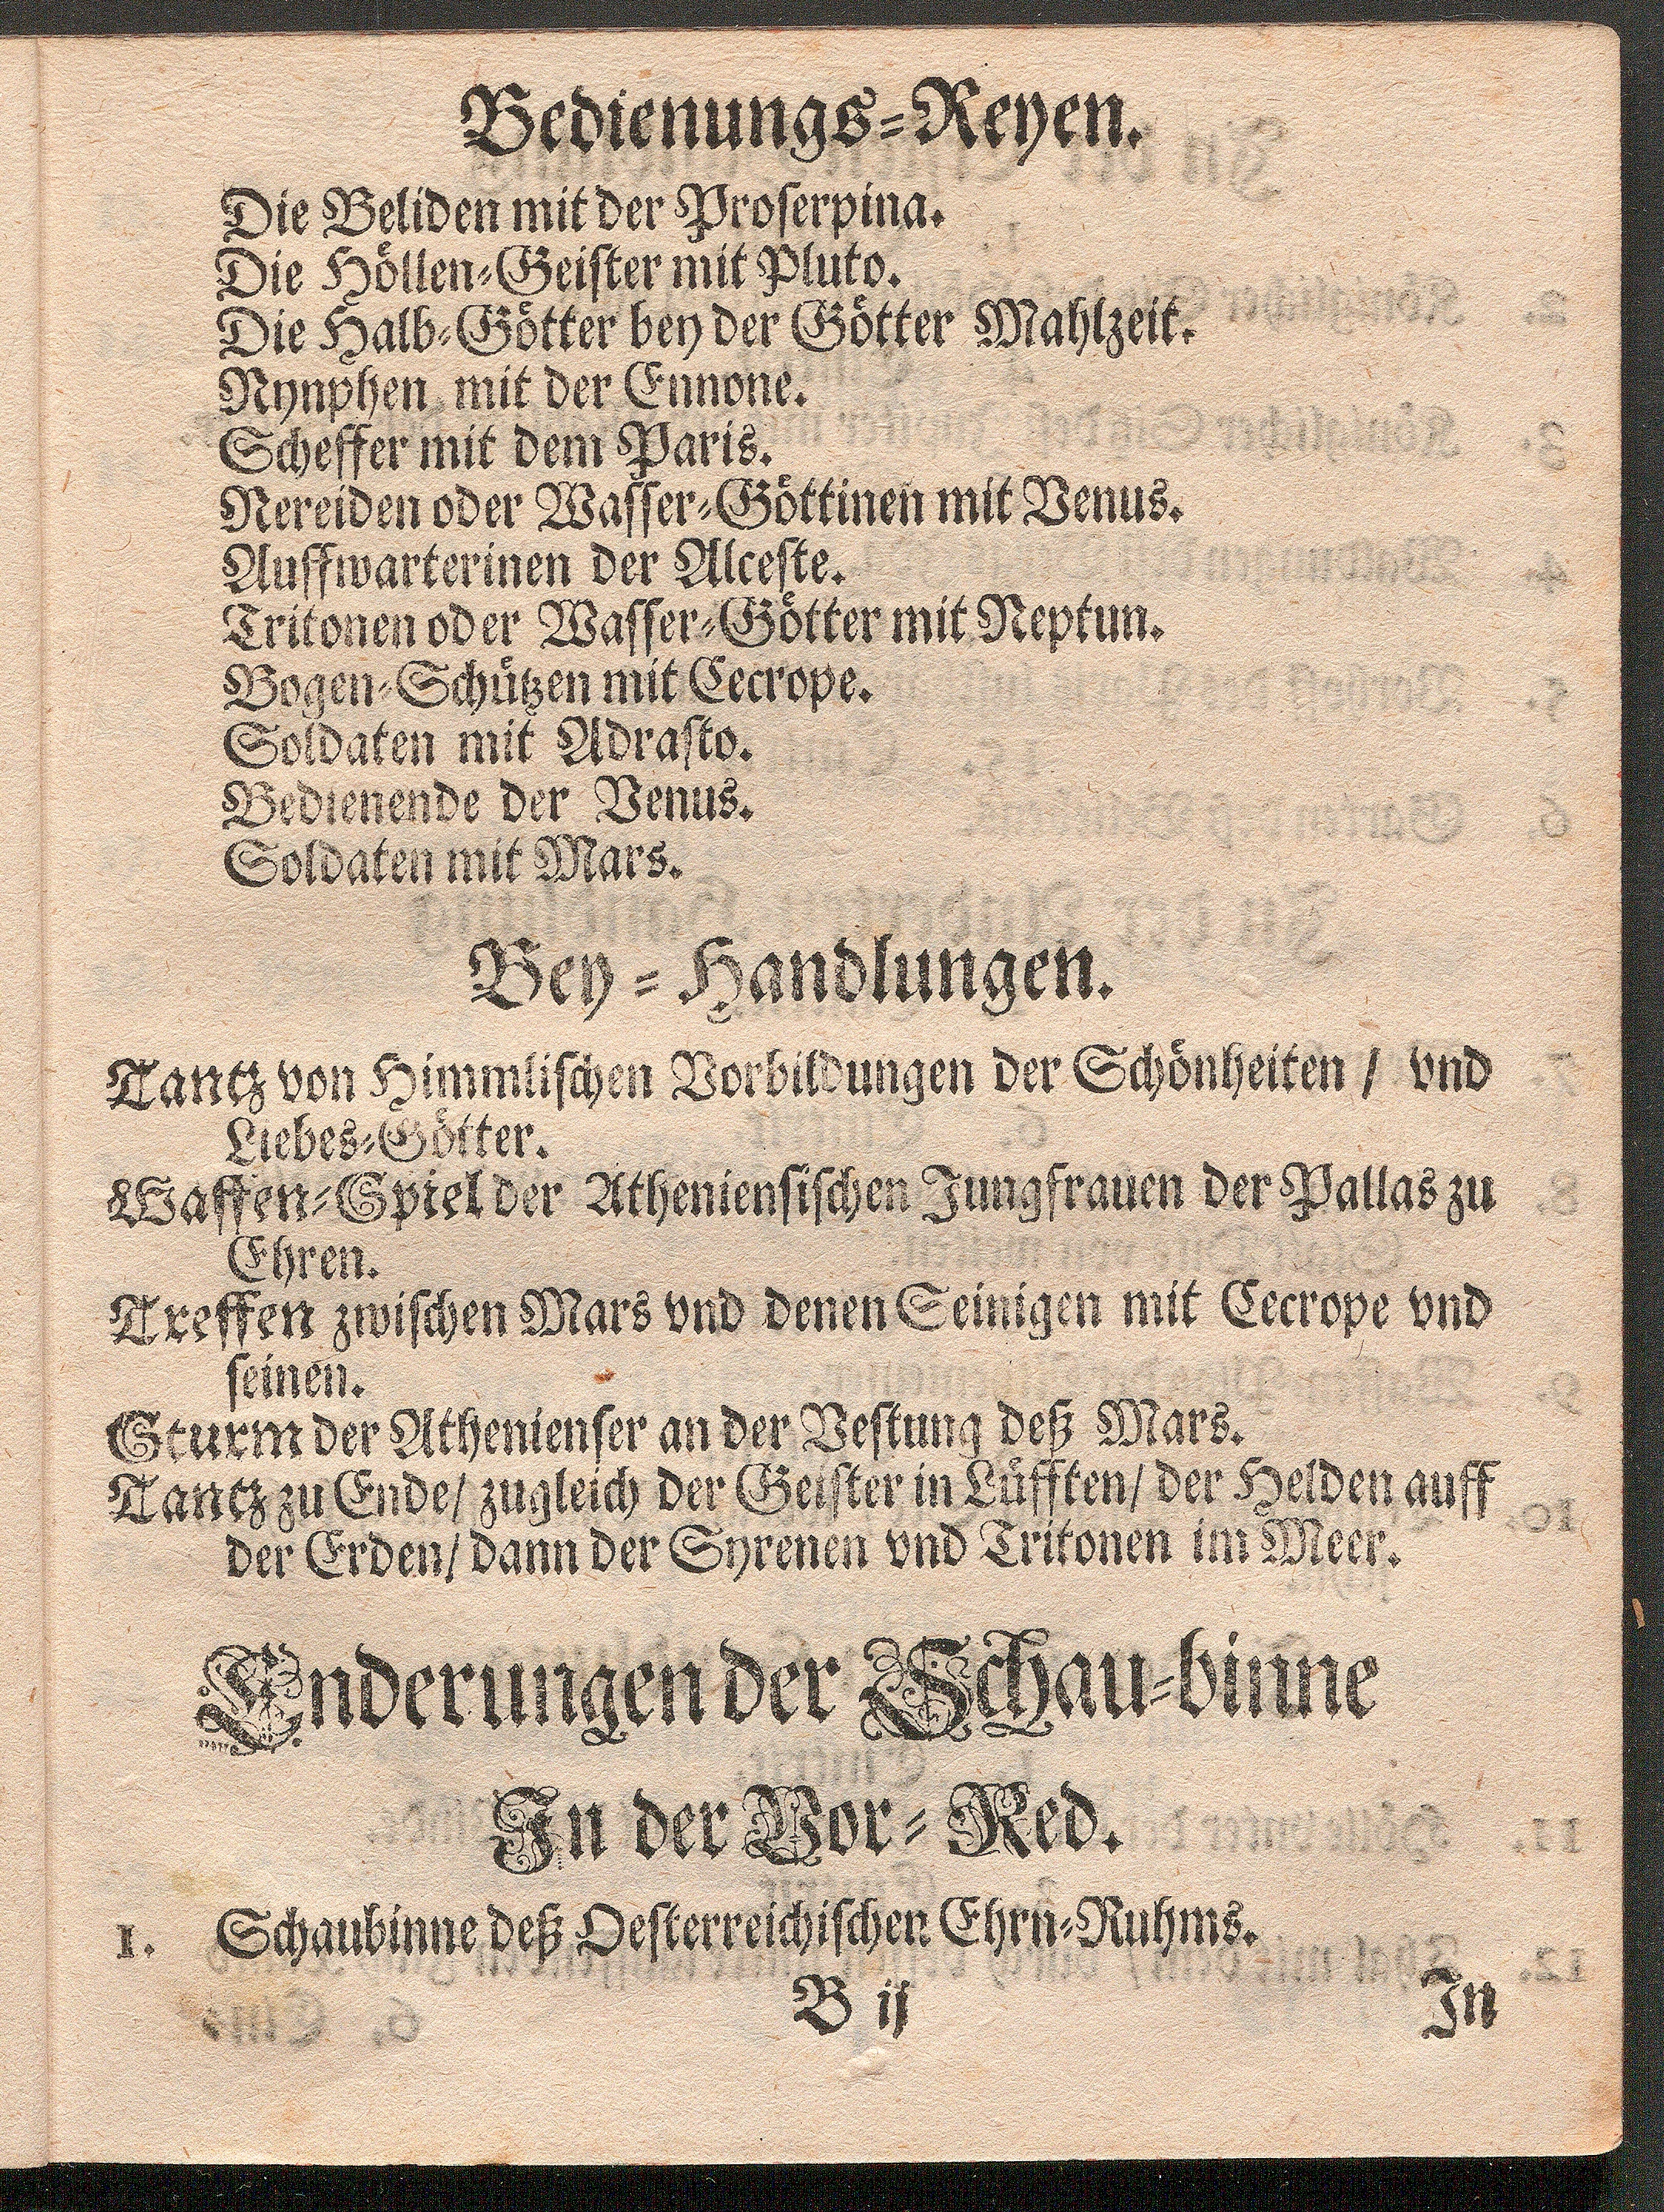 Bedienungs-Reyen.
Die Beliden mit der Proserpina.
Die Höllen-Geister mit Pluto.
Die Halb-Götter bey der Götter Mahlzeit.
Nynphen mit der Ennone.
Scheffer mit dem Paris.
Nereiden oder Wasser-Göttinen mit Venus.
Auffwarterinen der Alceste.
Tritonen oder Wasser-Götter mit Neptun.
Bogen-Schützen mit Cecrope.
Soldaten mit Adrasto.
Bedienende der Venus.
Soldaten mit Mars.
Bey-Handlungen.
Tantz von Himmlischen Vorbildungen der Schönheiten / vnd
Liebes-Götter.
Waffen-Spiel der Atheniensischen Jungfrauen der Pallas zu
Ehren.
Treffen zwischen Mars vnd denen Seinigen mit Cecrope vnd
seinen.
Sturm der Athenienser an der Vestung deß Mars.
Tantz zu Ende/ zugleich der Geister in Lüfften/ der Helden auff
der Erden/ dann der Syrenen vnd Tritonen im Meer.
Enderungen der Schau-binne
In der Vor-Red.
1. Schaubinne deß Oesterreichischen Ehrn-Ruhms.
B ij In